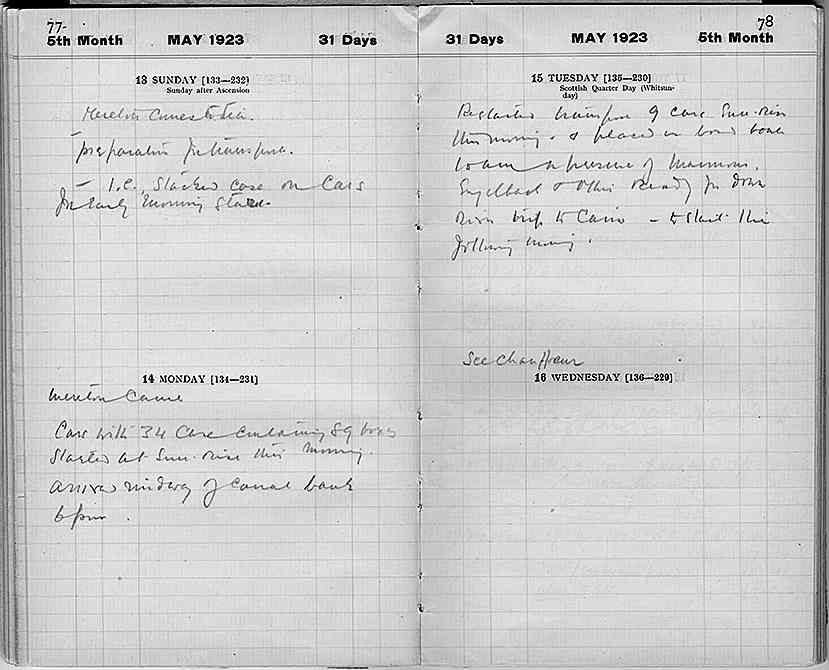 77-
5th Month MAY 1923 31 Days
13 SUNDAY [133—232]
Sunday after Ascension
Merton came to tea.
preparation for transport.
– I.e. Stacked case on Cars
for Early morning Start.
14 MONDAY [134—231]
Merton Came
Cars with 34 Case Containing 89 boxes
Started at Sun-rise this morning.
arrived midway of Canal bank
6 pm.
78
31 Days MAY 1923 5th Month
15 TUESDAY [135—230]
Scottish Quarter Day (Whitsun-
day)
Restarted transport of cars Sun-rise
this morning - & placed on board boat
10 am in presence of Mamours.
Engelbach & Ready for down
river trip to Cairo – to start the
following morning.
See Chauffeur
16 WEDNESDAY [136—229]